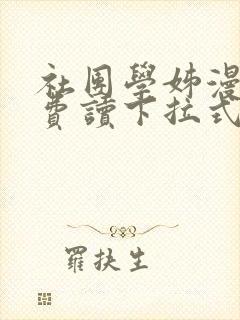 社团學姊漫
費讀下拉式
羅扶生